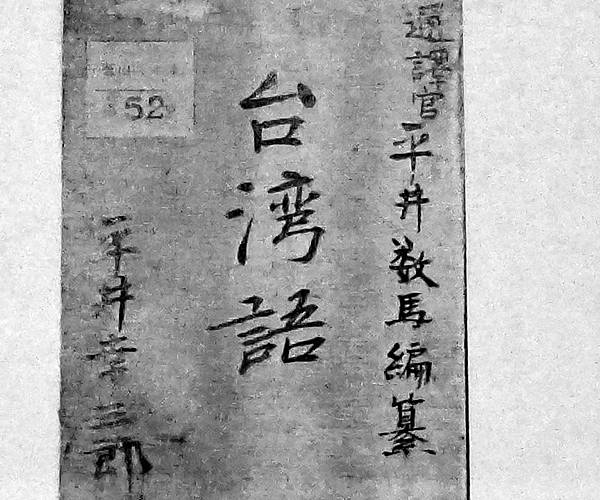 通譯官平井数馬編纂
台湾語
平井幸三郎
52